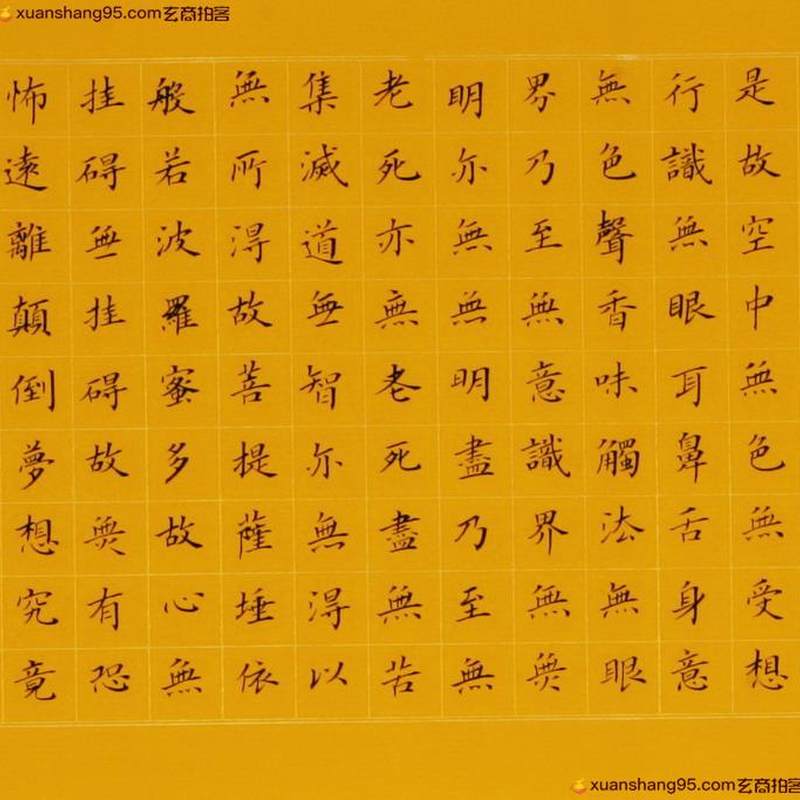 xuanshang95.com玄商拍客
是故空中無色無受想
行識無眼耳鼻舌身意
無色聲香味觸法無眼
界乃至無意識界無無
明亦無無明盡乃至無
老死亦無老死盡無苦
集滅道無智亦無得以
無所得故菩提薩埵依
般若波羅蜜多故心無
挂碍無挂碍故無有恐
怖遠離顛倒夢想究竟
xuanshang95.com玄商拍客